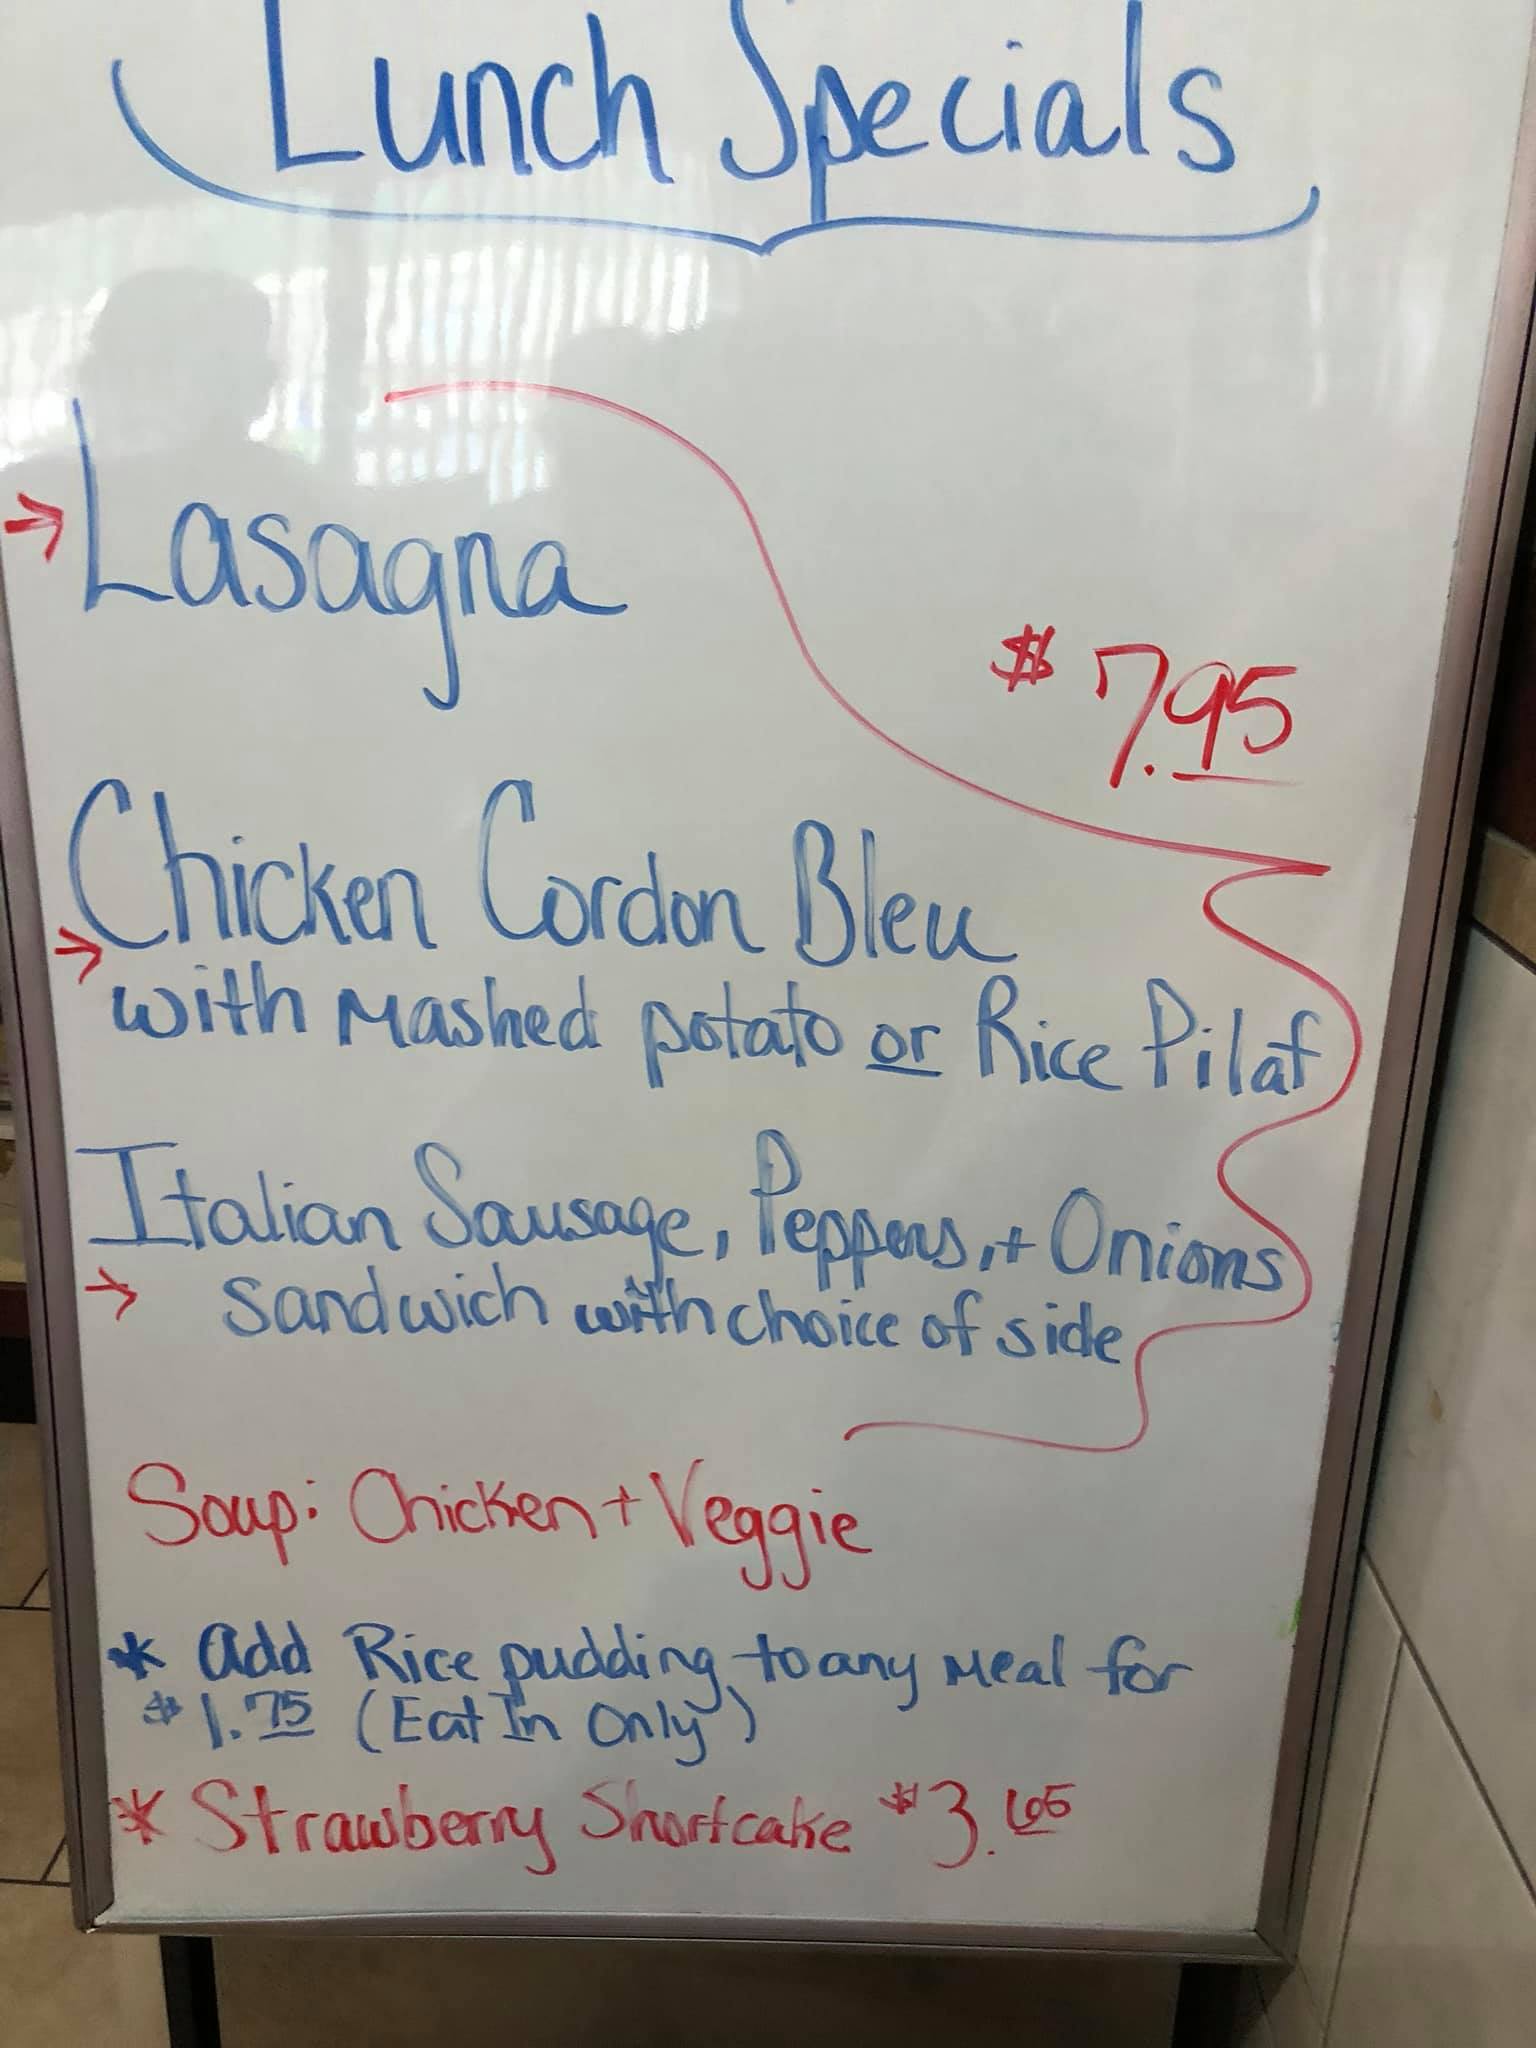 Lunch Specials
Lasagna
$7.95
Chicken Cordon Bleu
with Mashed potato or Rice Pilaf
Italian Sausage, Peppers, + Onions
Sandwich with choice of side
Soup: Chicken + Veggie
* Add Rice pudding to any Meal for
$1.75 (Eat In Only)
* Strawberry Shortcake $3.65